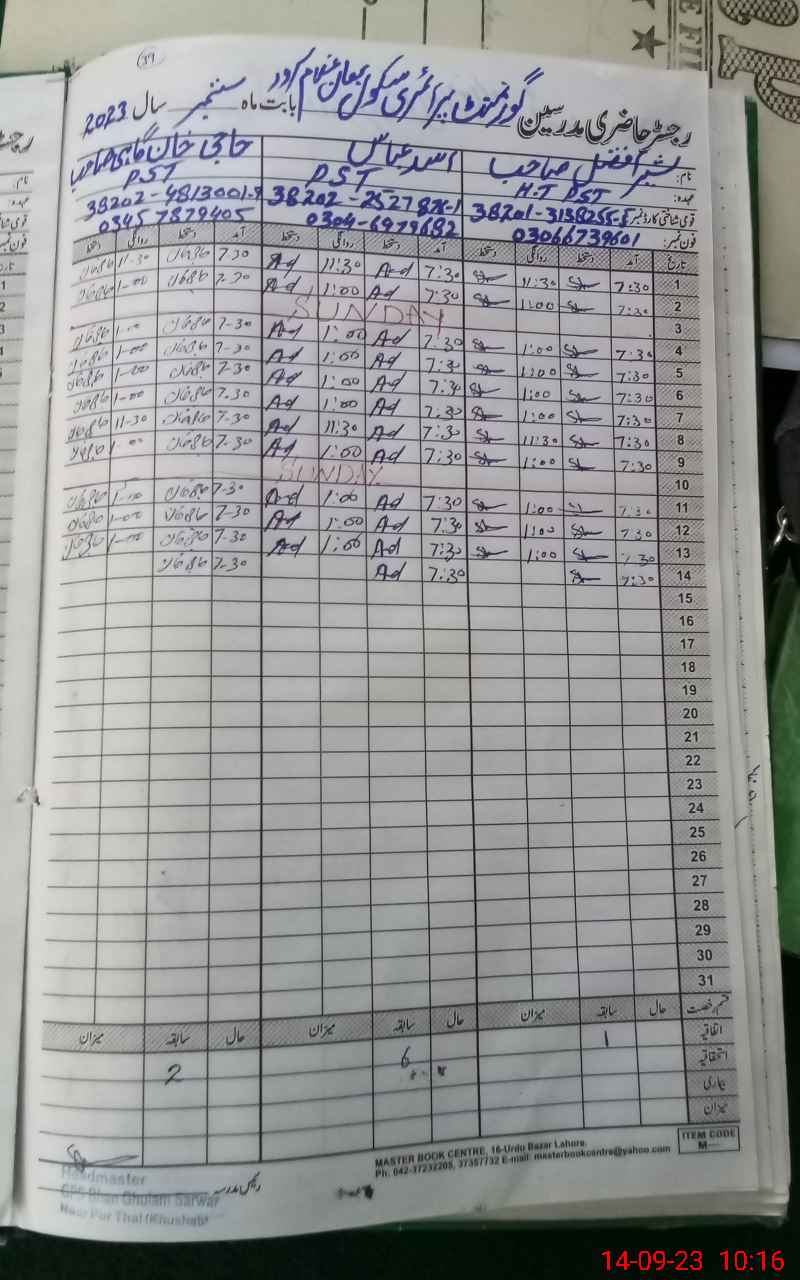 39
رجسٹر حاضری مدرسین گورنمنٹ پرائمری سکول بھان غلام سرور بابت ماہ ستمبر سال 2023
نام: شیر افضل صاحب اسد عباس حاجی خان گاہی صاحب
عہدہ: H.T PST PST PST
قومی شناختی کارڈ نمبر 38202-4813001-9
فون نمبر: 03066739601 0304-6979682 03457879405
تاریخ آمد دستخط روانگی دستخط آمد دستخط روانگی دستخط آمد دستخط روانگی دستخط
1 7:30 11:30 7:30 Ad 11:30 Ad 7-30 11-30
2 7:30 1:00 7:30 Ad 1:00 Ad 7-30 1-00
3 SUNDAY
4 7:30 1:00 7:30 Ad 1:00 Ad 7-30 1-00
5 7:30 1:00 7:30 Ad 1:00 Ad 7-30 1-00
6 7:30 1:00 7:30 Ad 1:00 Ad 7-30 1-00
7 7:30 1:00 7:30 Ad 1:00 Ad 7-30 1-00
8 7:30 11:30 7:30 Ad 11:30 Ad 7-30 11-30
9 7:30 1:00 7:30 Ad 1:00 Ad 7-30 1-00
10 SUNDAY
11 7:30 1:00 7:30 Ad 1:00 Ad 7-30 1-00
12 7:30 1:00 7:30 Ad 1:00 Ad 7-30 1-00
13 7:30 1:00 7:30 Ad 1:00 Ad 7-30 1-00
14 7:30 7:30 Ad 7-30
15
16
17
18
19
20
21
22
23
24
25
26
27
28
29
30
31
قسم رخصت حال سابقہ میزان حال سابقہ میزان حال سابقہ میزان
اتفاقیہ 1 6 2
استحقاقیہ
بیماری
میزان
ITEM CODE
M
MASTER BOOK CENTRE, 16-Urdu Bazar Lahore.
Ph: 042-37232205, 37357732 E-mail: masterbookcentre@yahoo.com
رئیس مدرسہ
Headmaster
GPS Bhan Ghulam Sarwar
Noor Pur Thal (Khushab)
14-09-23 10:16